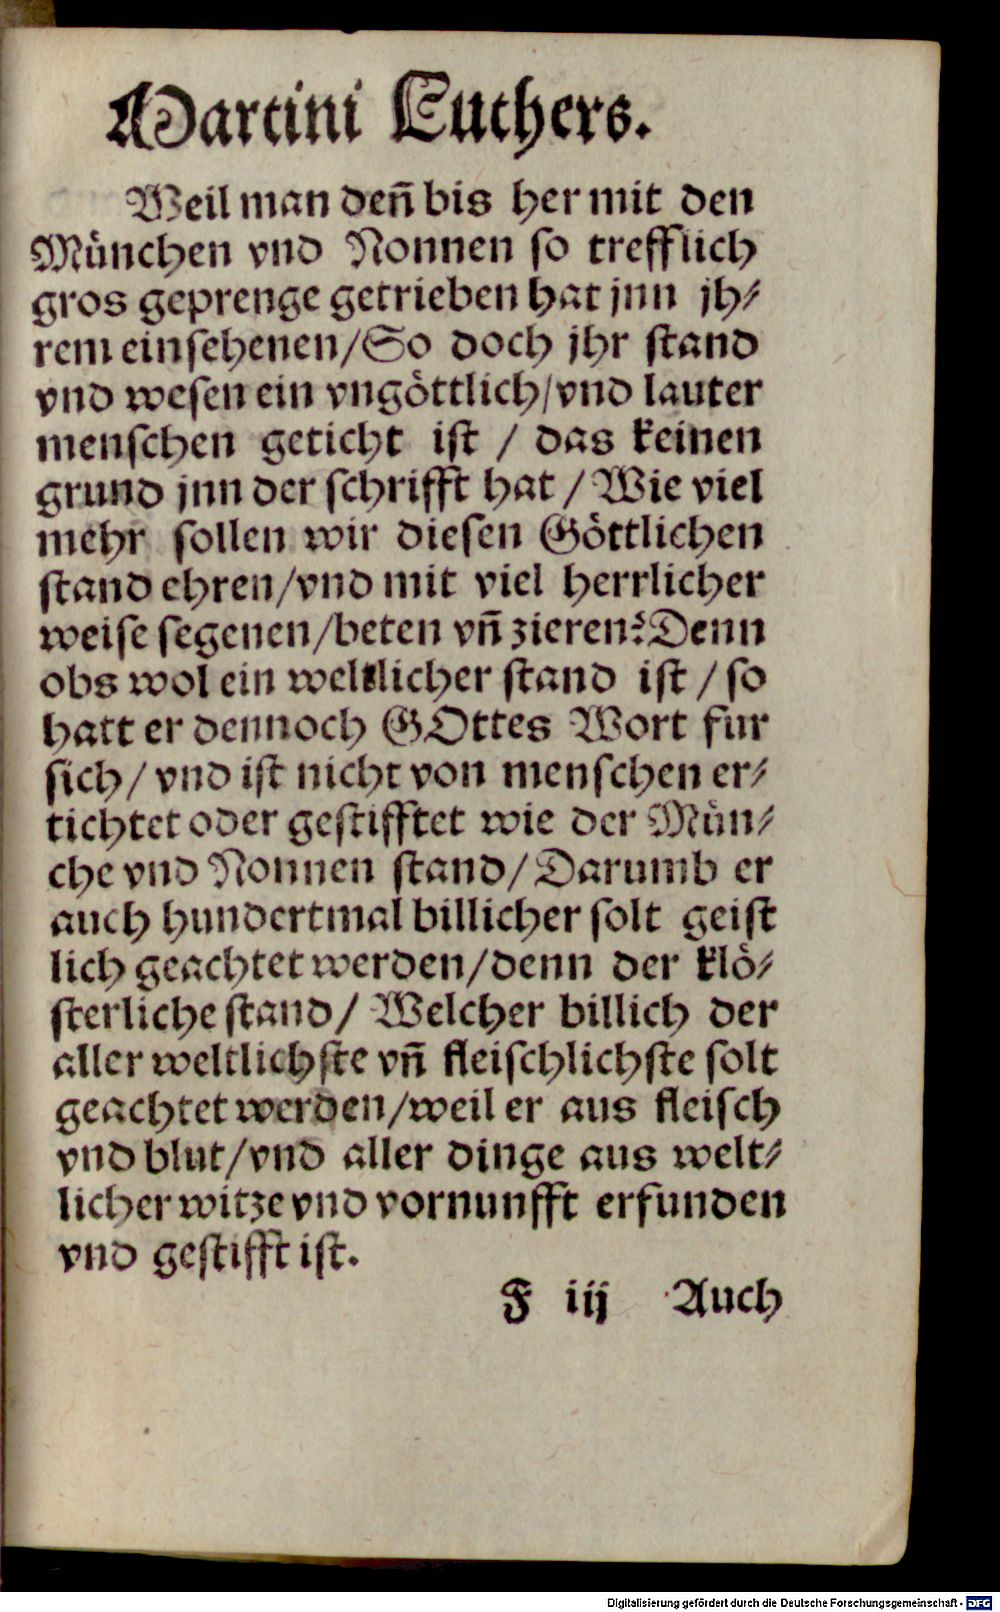 Martini Luthers.
Weil man deñ bis her mit den
München vnd Nonnen so trefflich
gros geprenge getrieben hat jnn jh⸗
rem einsehenen/So doch jhr stand
vnd wesen ein vngöttlich/vnd lauter
menschen geticht ist / das keinen
grund jnn der schrifft hat / Wie viel
mehr sollen wir diesen Göttlichen
stand ehren/vnd mit viel herrlicher
weise segenen/beten vñ zieren? Denn
obs wol ein weltlicher stand ist / so
hatt er dennoch GOttes Wort fur
sich/ vnd ist nicht von menschen er⸗
tichtet oder gestifftet wie der Mün⸗
che vnd Nonnen stand/ Darumb er
auch hundertmal billicher solt geist
lich geachtet werden/denn der klö⸗
sterliche stand/ Welcher billich der
aller weltlichste vñ fleischlichste solt
geachtet werden/weil er aus fleisch
vnd blut/vnd aller dinge aus welt⸗
licher witze vnd vornunfft erfunden
vnd gestifft ist.
F iij Auch
Digitalisierung gefördert durch die Deutsche Forschungsgemeinschaft - DFG